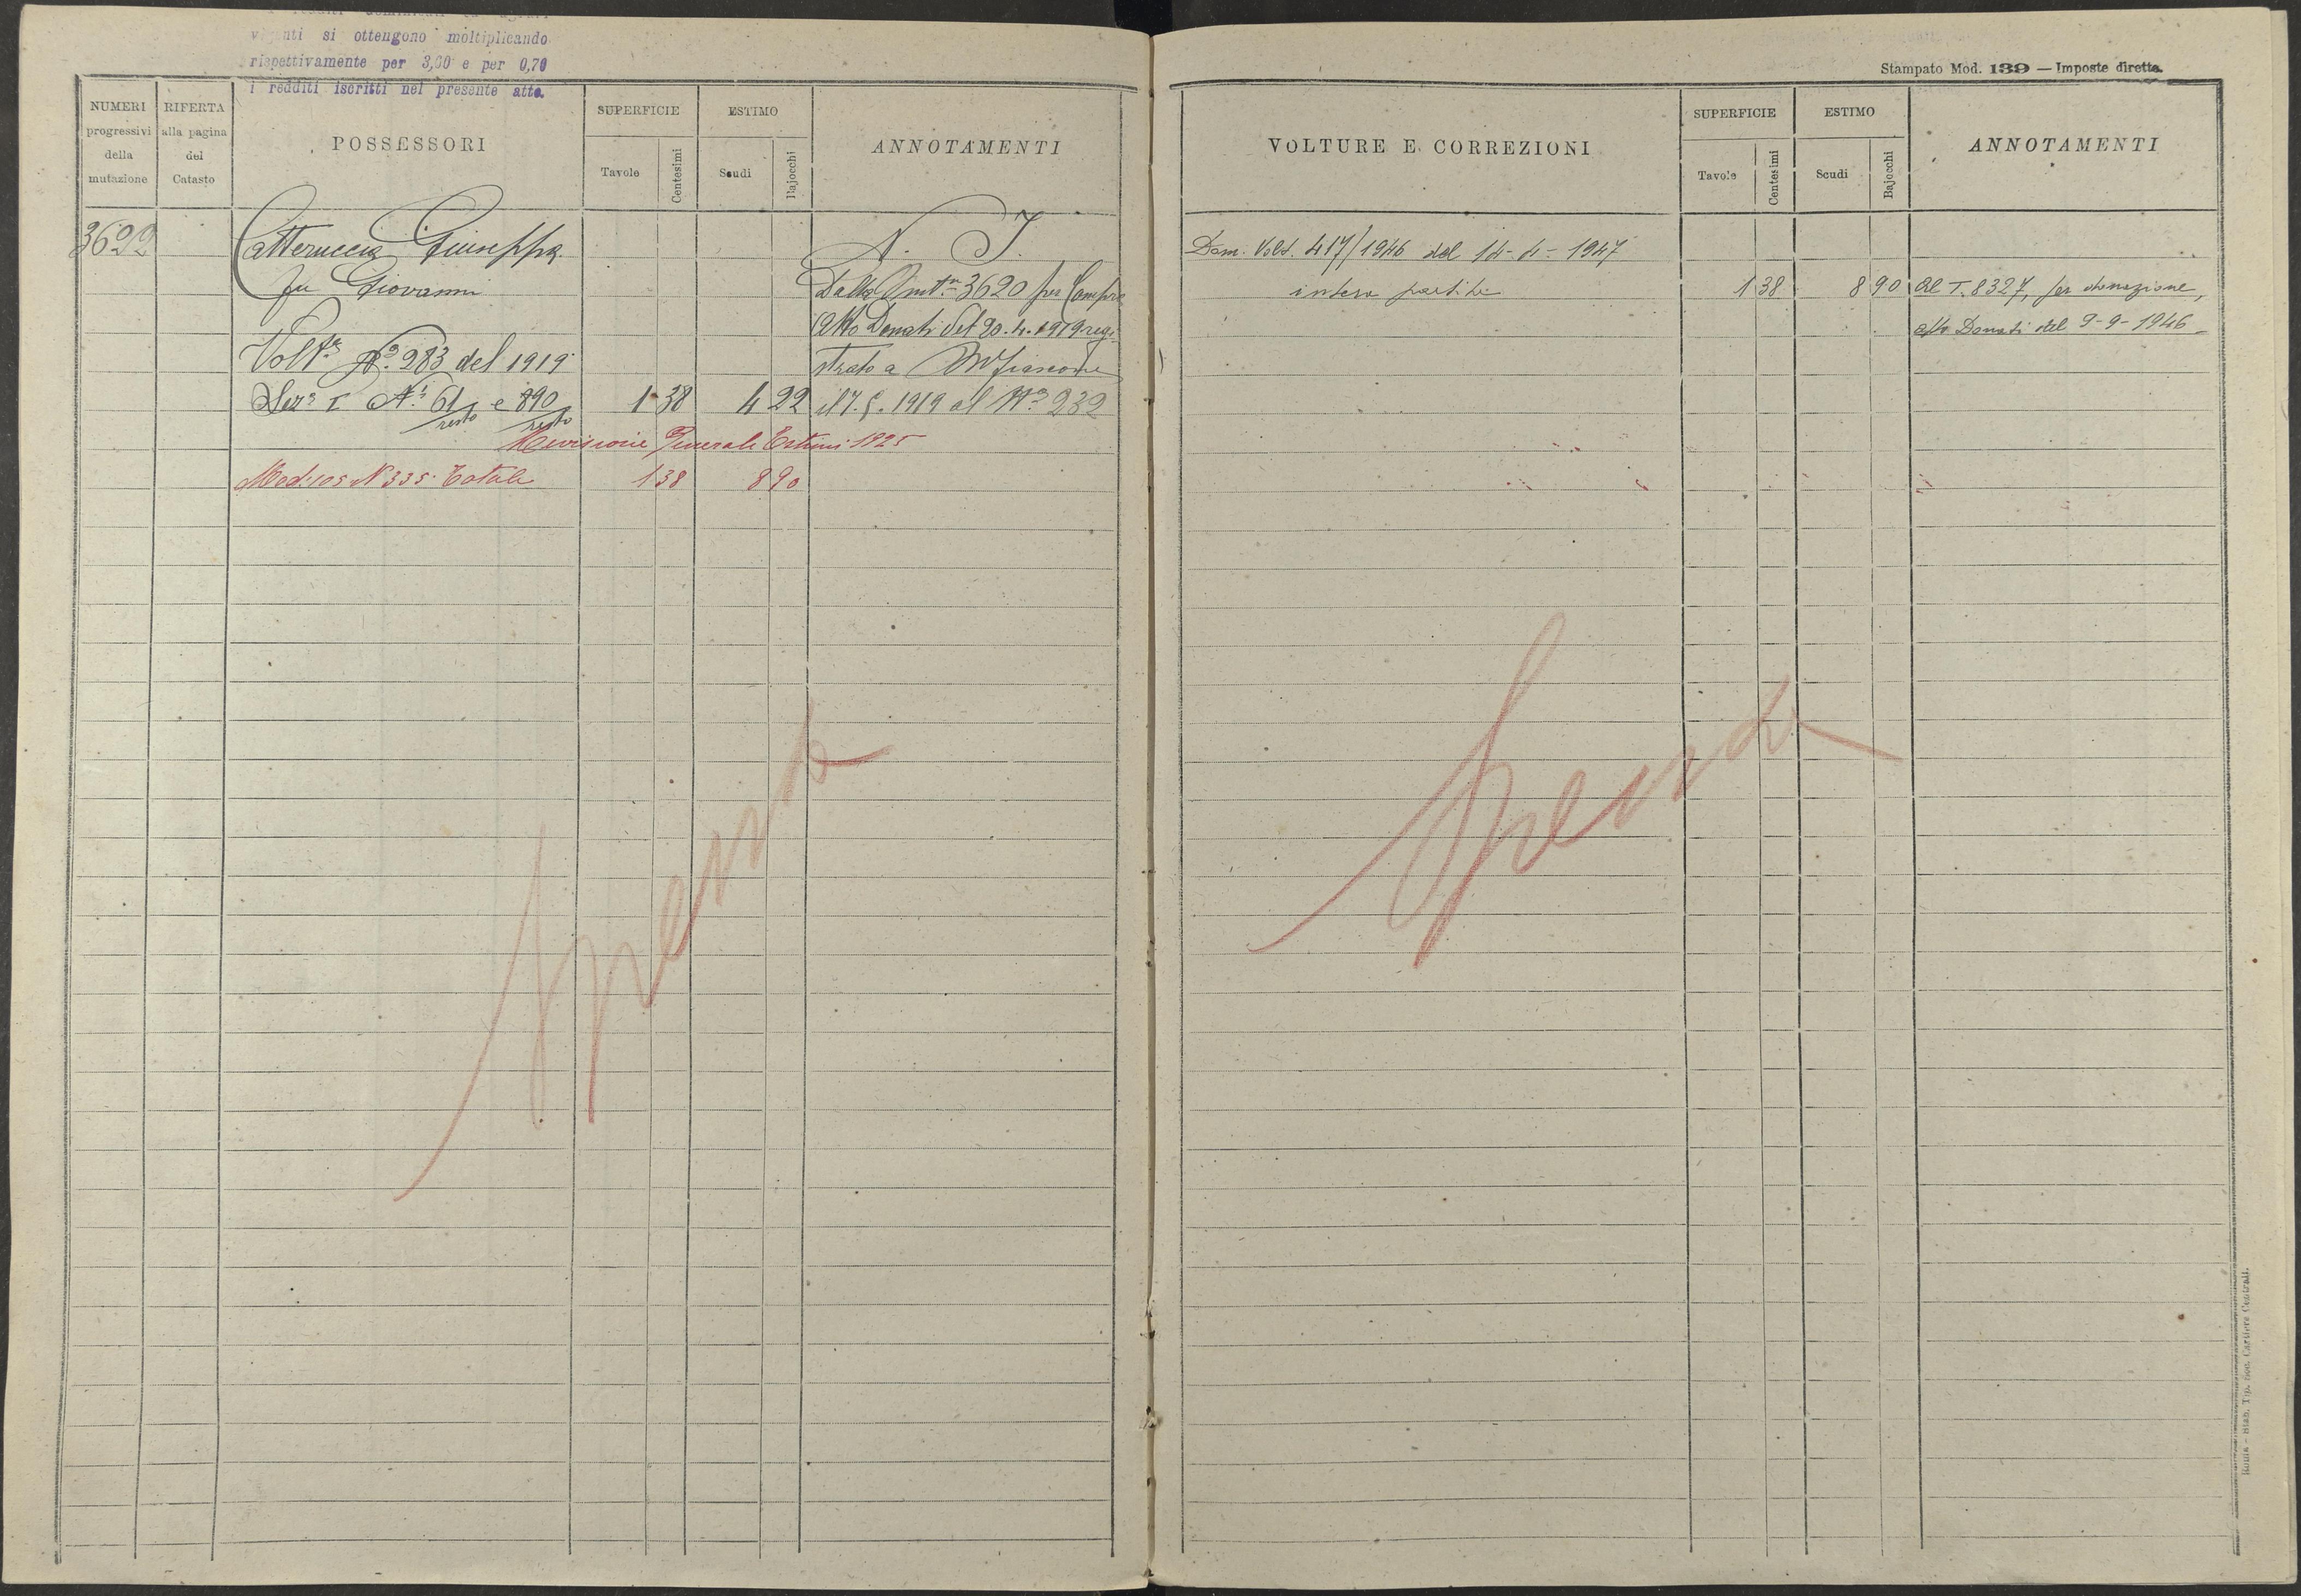 si ottengono moltiplicando
rispettivamente per 3,00 e per 0,70
i redditi iscritti nel presente atto.
NUMERI
progressivi
della
mutazione
RIFERTA
alla pagina
del
Catasto
POSSESSORI
SUPERFICIE
Tavole
Centesimi
ESTIMO
Scudi
Bajocchi
ANNOTAMENTI
3622
Catteruccia Giuseppa
fu Giovanni
A. T.
Dalla 3620 per Compra
Atto Donati del 20.4.1919 regi-
Volt.ra N.o 283 del 1919
strato a Mfiascone
Sez.e I N.i 61 resto e 890 resto 1 38 4 22
il 7.5.1919 al N.o 232
Revisione Generale Estimi 1925
Mod. 105 N 335 Totale 1 38 8 90
spenta
Stampato Mod. 139 — Imposte dirette.
VOLTURE E CORREZIONI
SUPERFICIE
Tavole
Centesimi
ESTIMO
Scudi
Bajocchi
ANNOTAMENTI
Dom. Volt. 417/1946 del 14-4-1947
intera partita 1 38 8 90 Al T. 8327, per donazione,
atto Donati del 9-9-1946
Spenta
Roma - Stab. Tip. Soc. Cartiere Centrali.